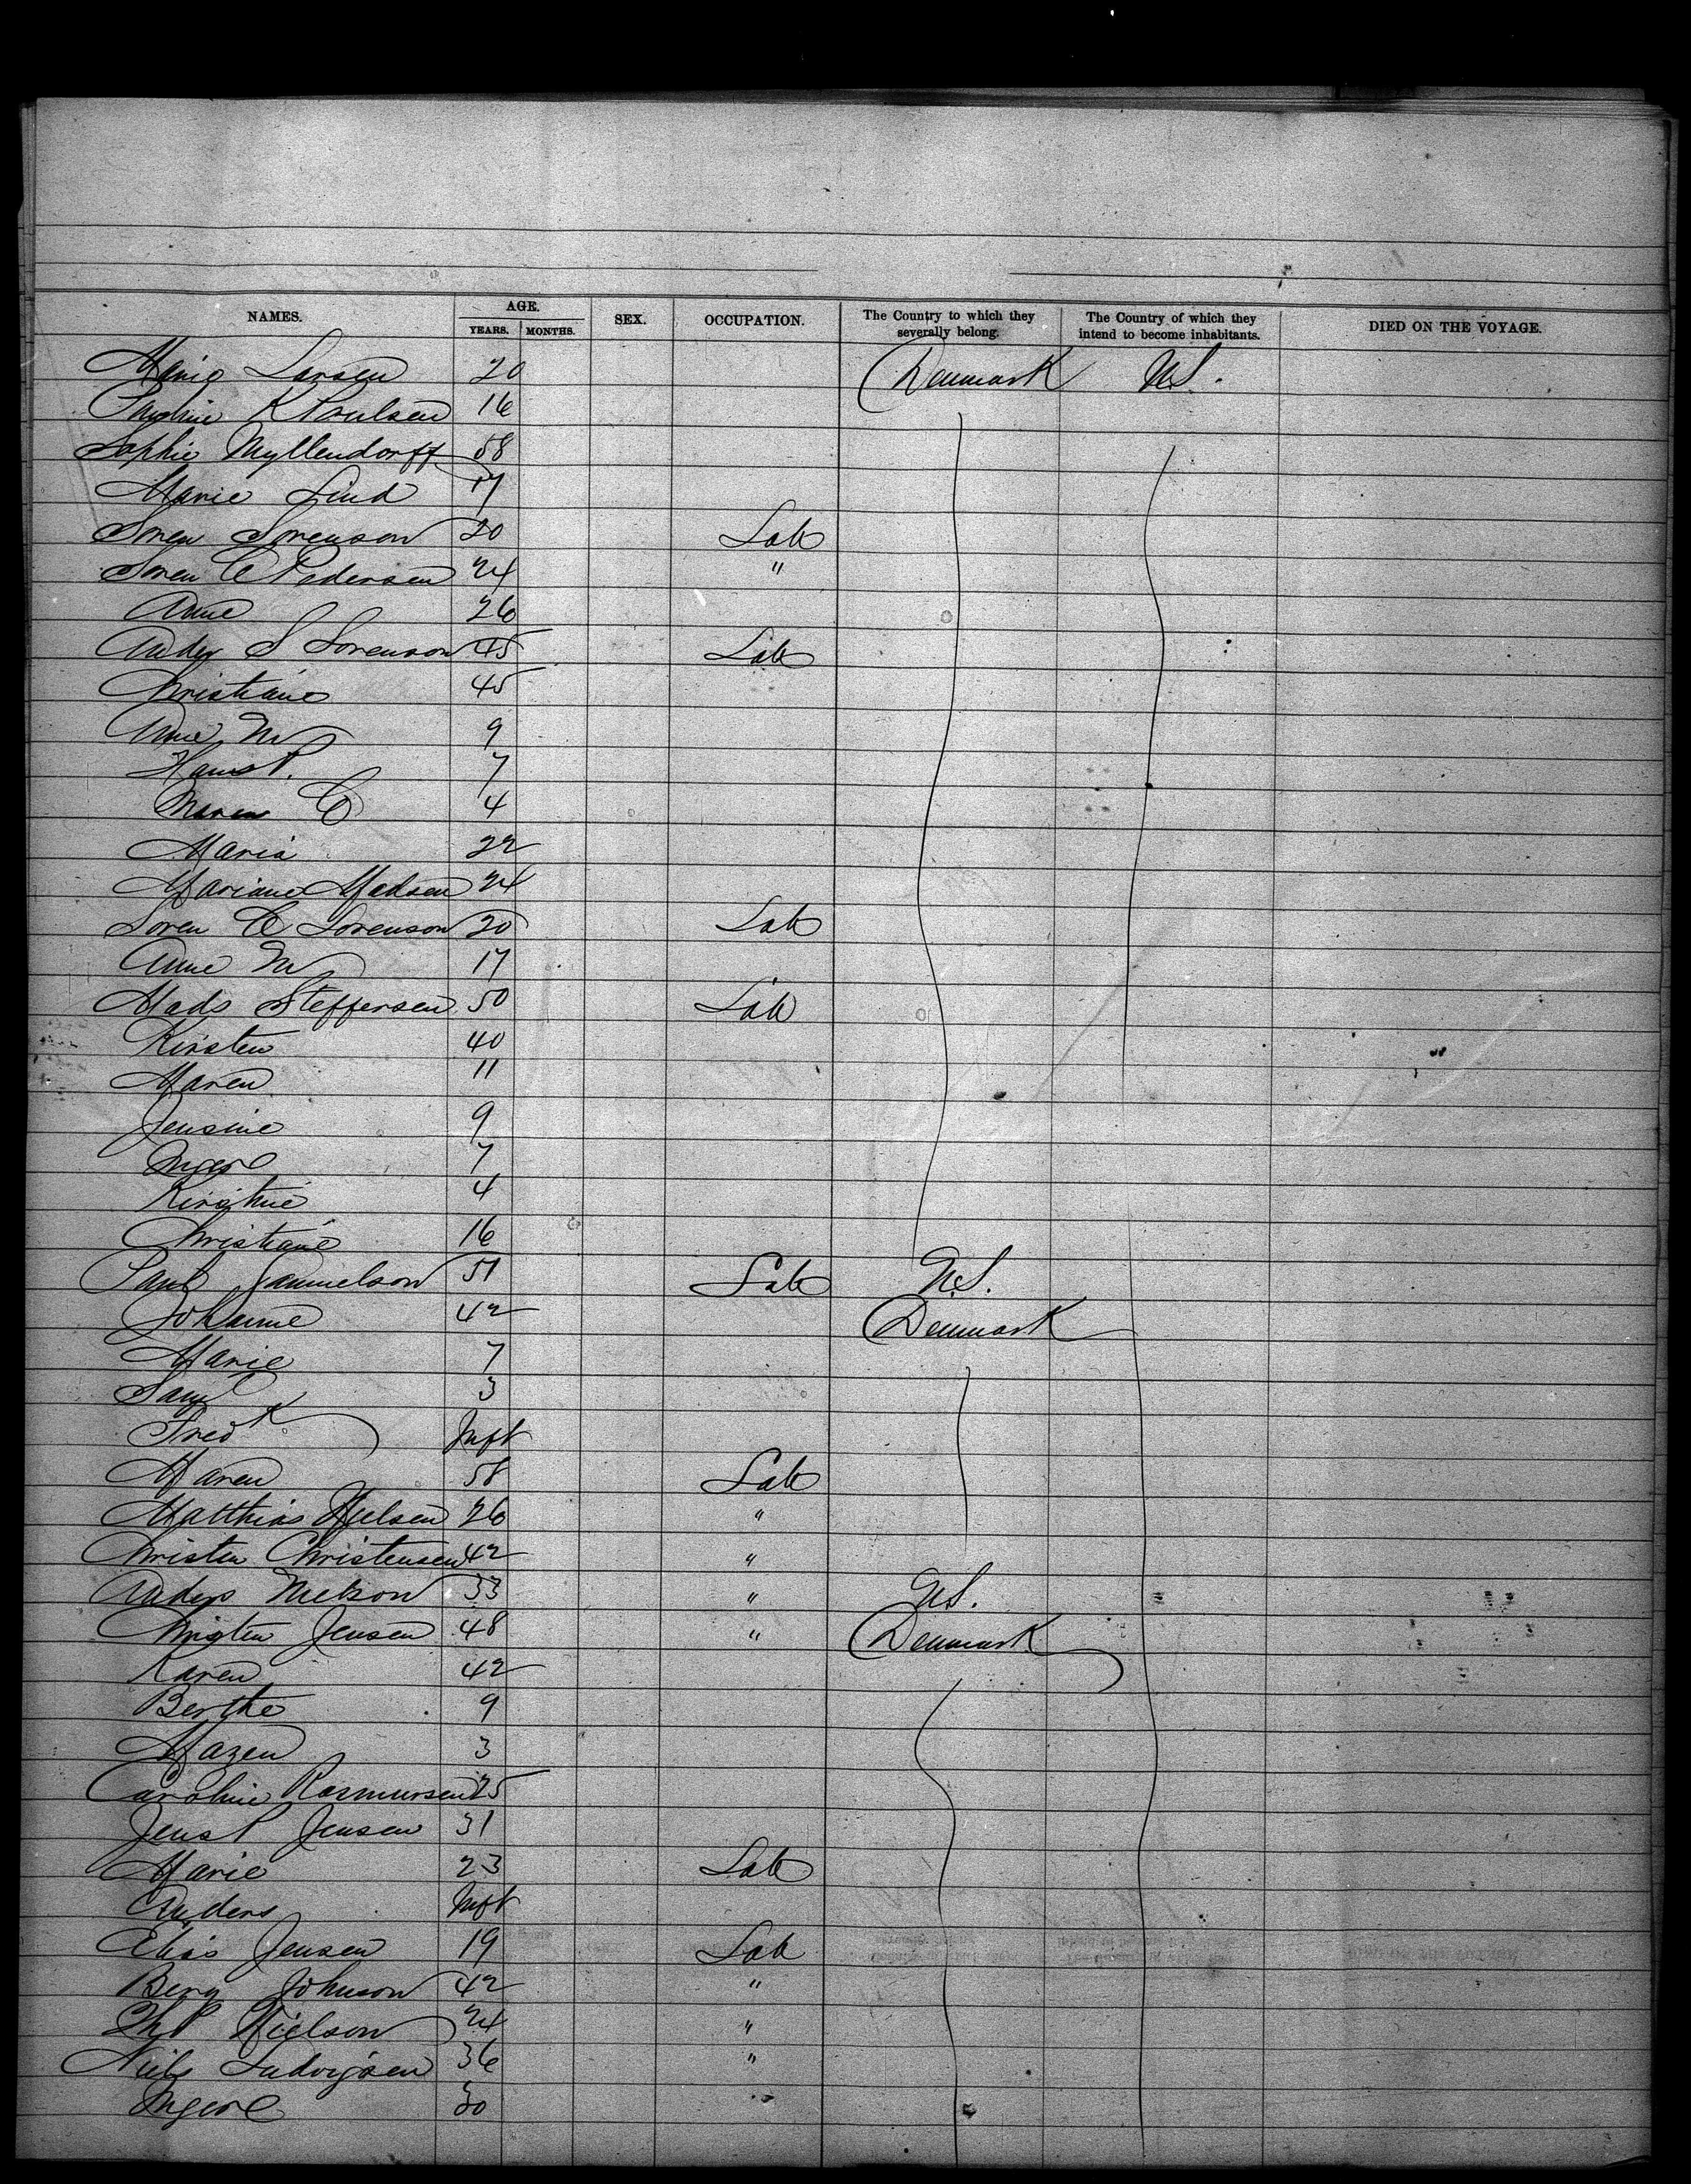 NAMES. AGE. SEX. OCCUPATION. The Country to which they severally belong. The Country of which they intend to become inhabitants. DIED ON THE VOYAGE.
YEARS. MONTHS.
Larsen 20 Denmark U.S.
K Poulsen 16
Sophie Myllendorff 58
Marie Lind 17
Soren Sorenson 20 Lab
Soren C Pedersen 24 "
Anne 26
Anders S Sorenson 45 Lab
Christiane 45
Anne M 9
Hans P. 7
Maren C 4
Maria 22
Mariane Madsen 24
Soren C Sorenson 20 Lab
Anne M 17
Mads Steffensen 50 Lab
Kirsten 40
Maren 11
Jensine 9
Inger 7
4
Christiane 16
Paul Samuelson 51 Lab U.S.
Johanne 42 Denmark
Marie 7
Saml 3
Fredk Inft
Maren 58 Lab
Matthias Nielsen 26 "
Christen Christensen 42 "
Anders Nielson 33 " U.S.
Christen Jensen 48 " Denmark
Karen 42
Berthe 9
Mazen 3
Caroline Rasmussen 25
Jens P Jensen 31
Marie 23 Lab
Anders Inft
Elias Jensen 19 Lab
Johnson 42 "
Nielson 24 "
Niels Ludvigsen 36 "
30 "